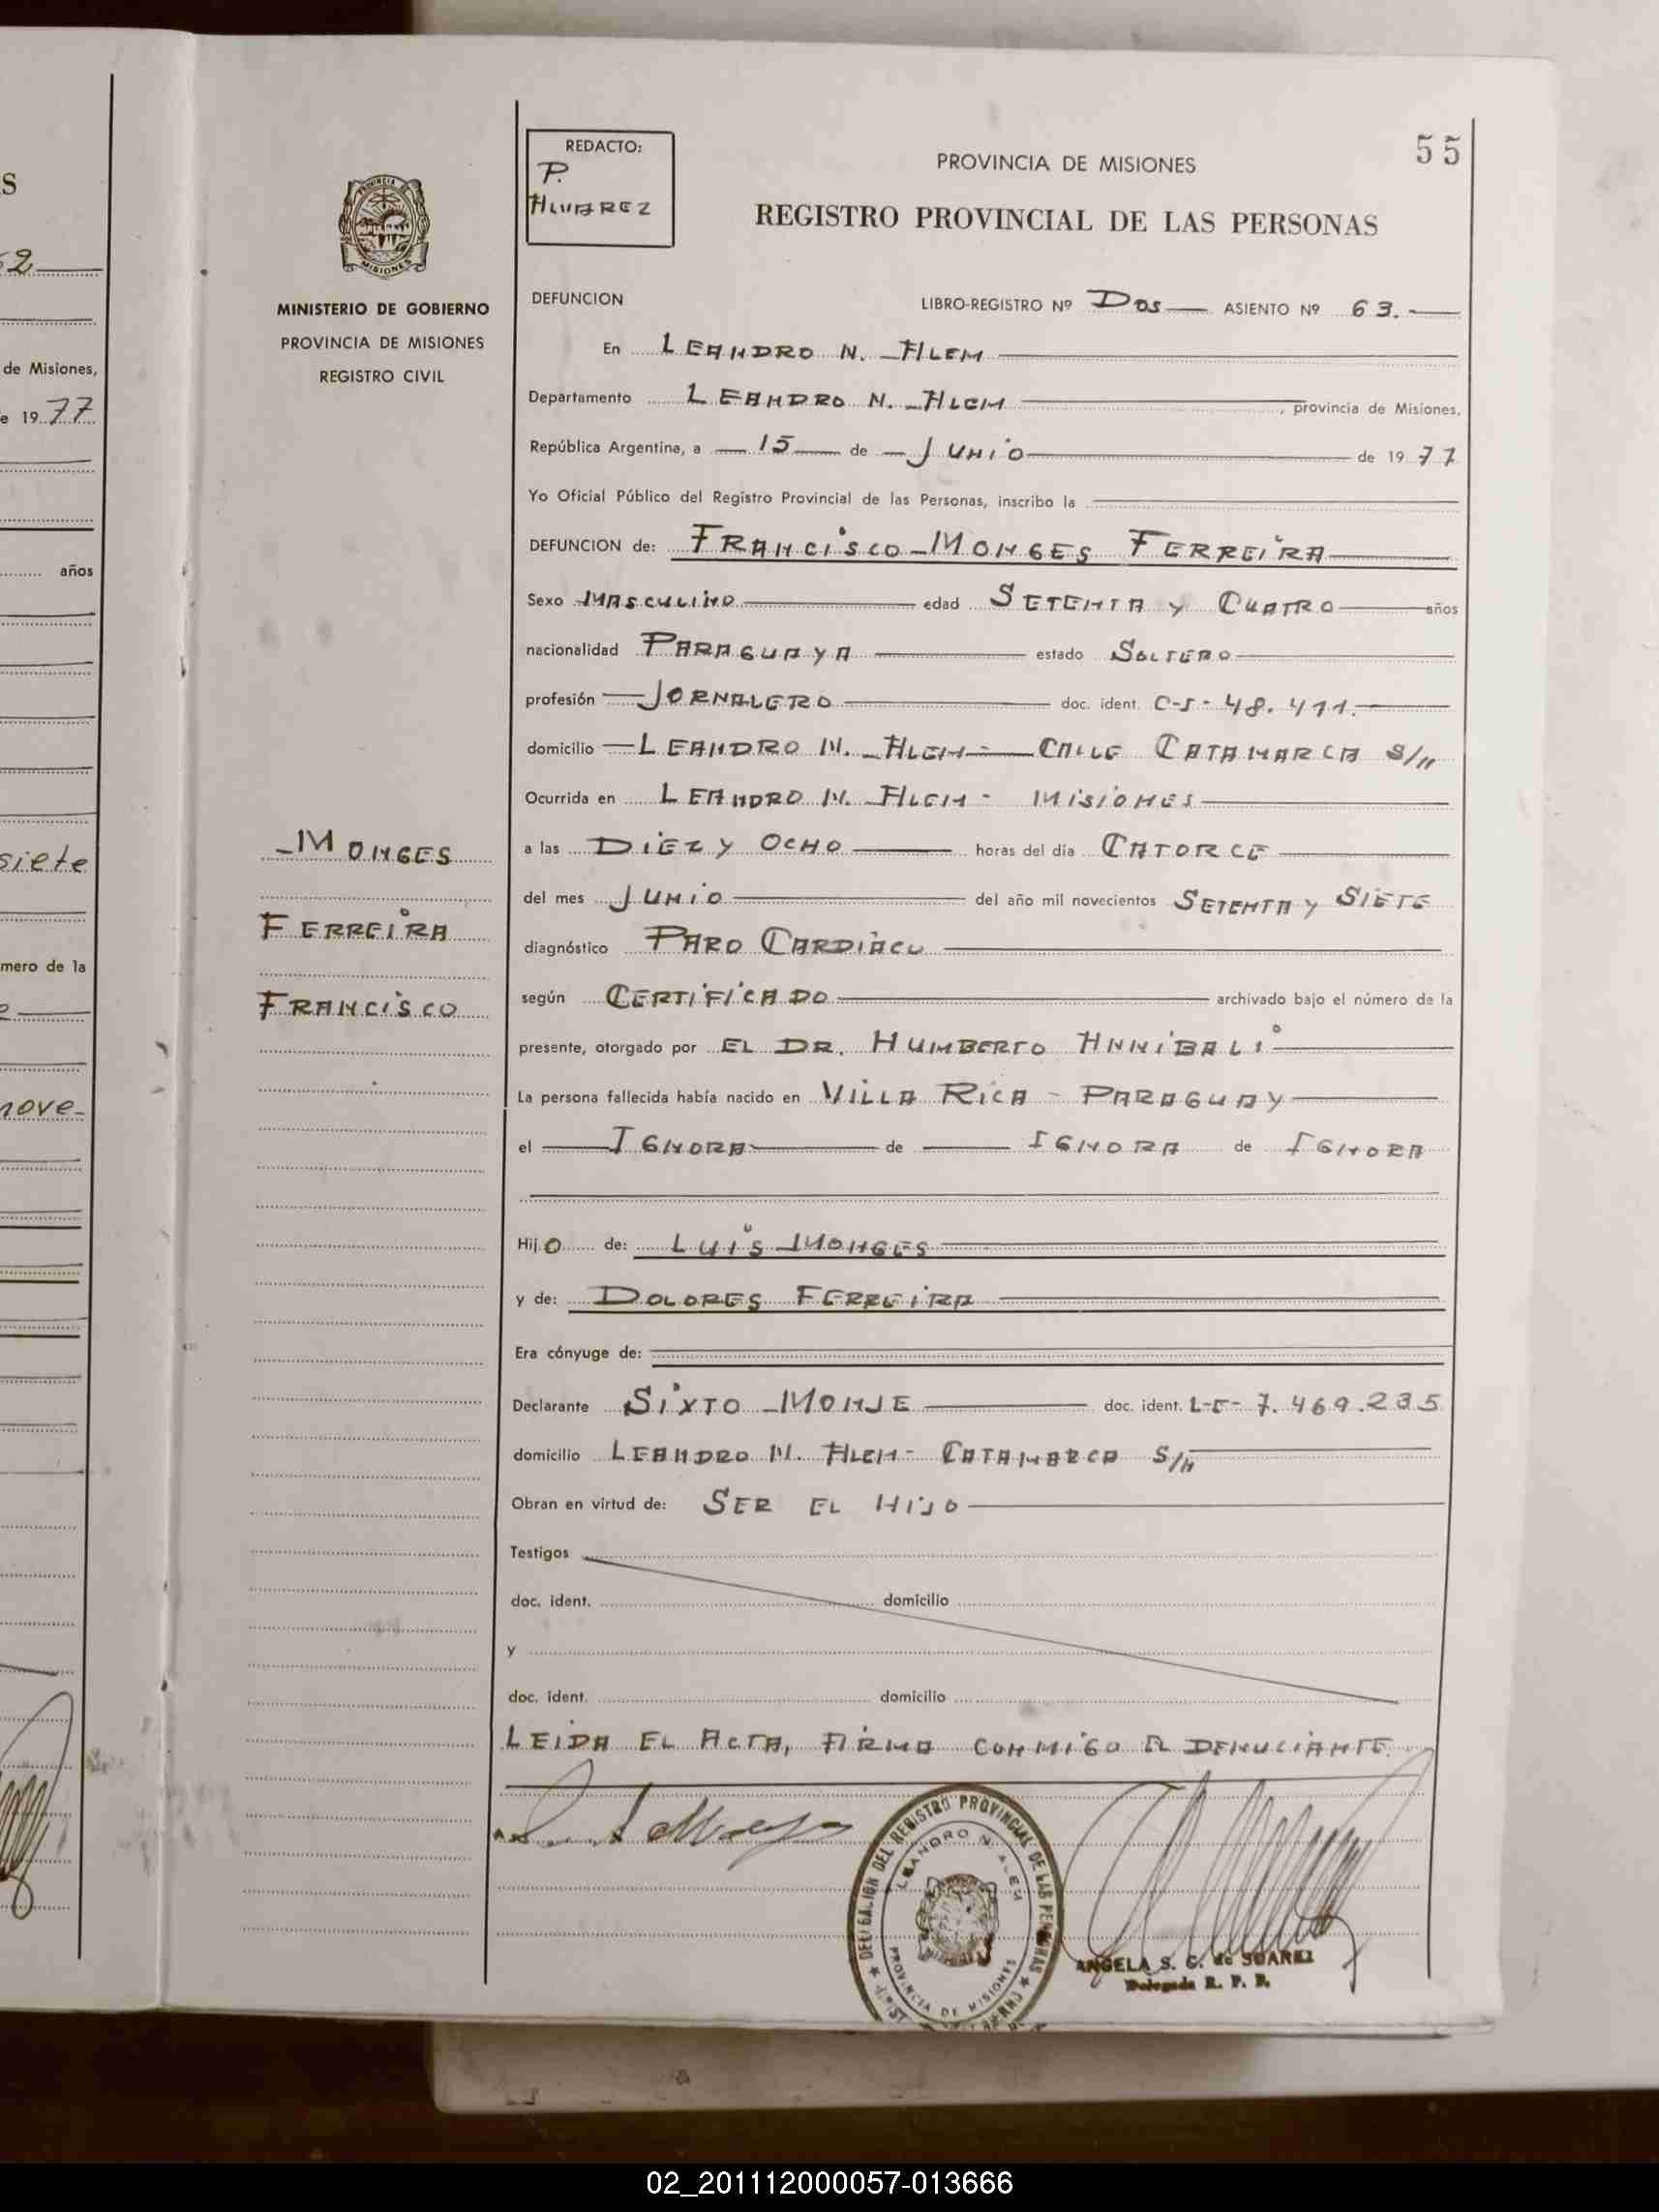 S
62
de Misiones,
e 1977
años
siete
mero de la
nove-
MISIONES
MINISTERIO DE GOBIERNO
PROVINCIA DE MISIONES
REGISTRO CIVIL
MONGES
FERREIRA
FRANCISCO
REDACTO:
P.
ALVAREZ
55
PROVINCIA DE MISIONES
REGISTRO PROVINCIAL DE LAS PERSONAS
DEFUNCION LIBRO-REGISTRO Nº DOS ASIENTO Nº 63.
En LEANDRO N. ALEM
Departamento LEANDRO N. ALEM, provincia de Misiones,
República Argentina, a 15 de JUNIO de 1977
Yo Oficial Público del Registro Provincial de las Personas, inscribo la
DEFUNCION de: FRANCISCO MONGES FERREIRA
Sexo MASCULINO edad SETENTA Y CUATRO años
nacionalidad PARAGUAYA estado SOLTERO
profesión JORNALERO doc. ident. C-I- 48.411.
domicilio LEANDRO N. ALEM - CALLE CATAMARCA S/N
Ocurrida en LEANDRO N. ALEM - MISIONES
a las DIEZ Y OCHO horas del día CATORCE
del mes JUNIO del año mil novecientos SETENTA Y SIETE
diagnóstico PARO CARDIACO
según CERTIFICADO archivado bajo el número de la
presente, otorgado por EL DR. HUMBERTO ANNIBALI
La persona fallecida había nacido en VILLA RICA - PARAGUAY
el IGNORA de IGNORA de IGNORA
Hijo de: LUIS MONGES
y de: DOLORES FERREIRA
Era cónyuge de:
Declarante SIXTO MONJE doc. ident. L-E- 7.469.235
domicilio LEANDRO N. ALEM - CATAMARCA S/N
Obran en virtud de: SER EL HIJO
Testigos
doc. ident. domicilio
y
doc. ident. domicilio
LEIDA EL ACTA, FIRMA CONMIGO EL DENUCIANTE.
DELEGACION DEL REGISTRO PROVINCIAL DE LAS PERSONAS
LEANDRO N. ALEM
PROVINCIA DE MISIONES
ANGELA S. G. de SUAREZ
Delegada R. P. P.
02_201112000057-013666